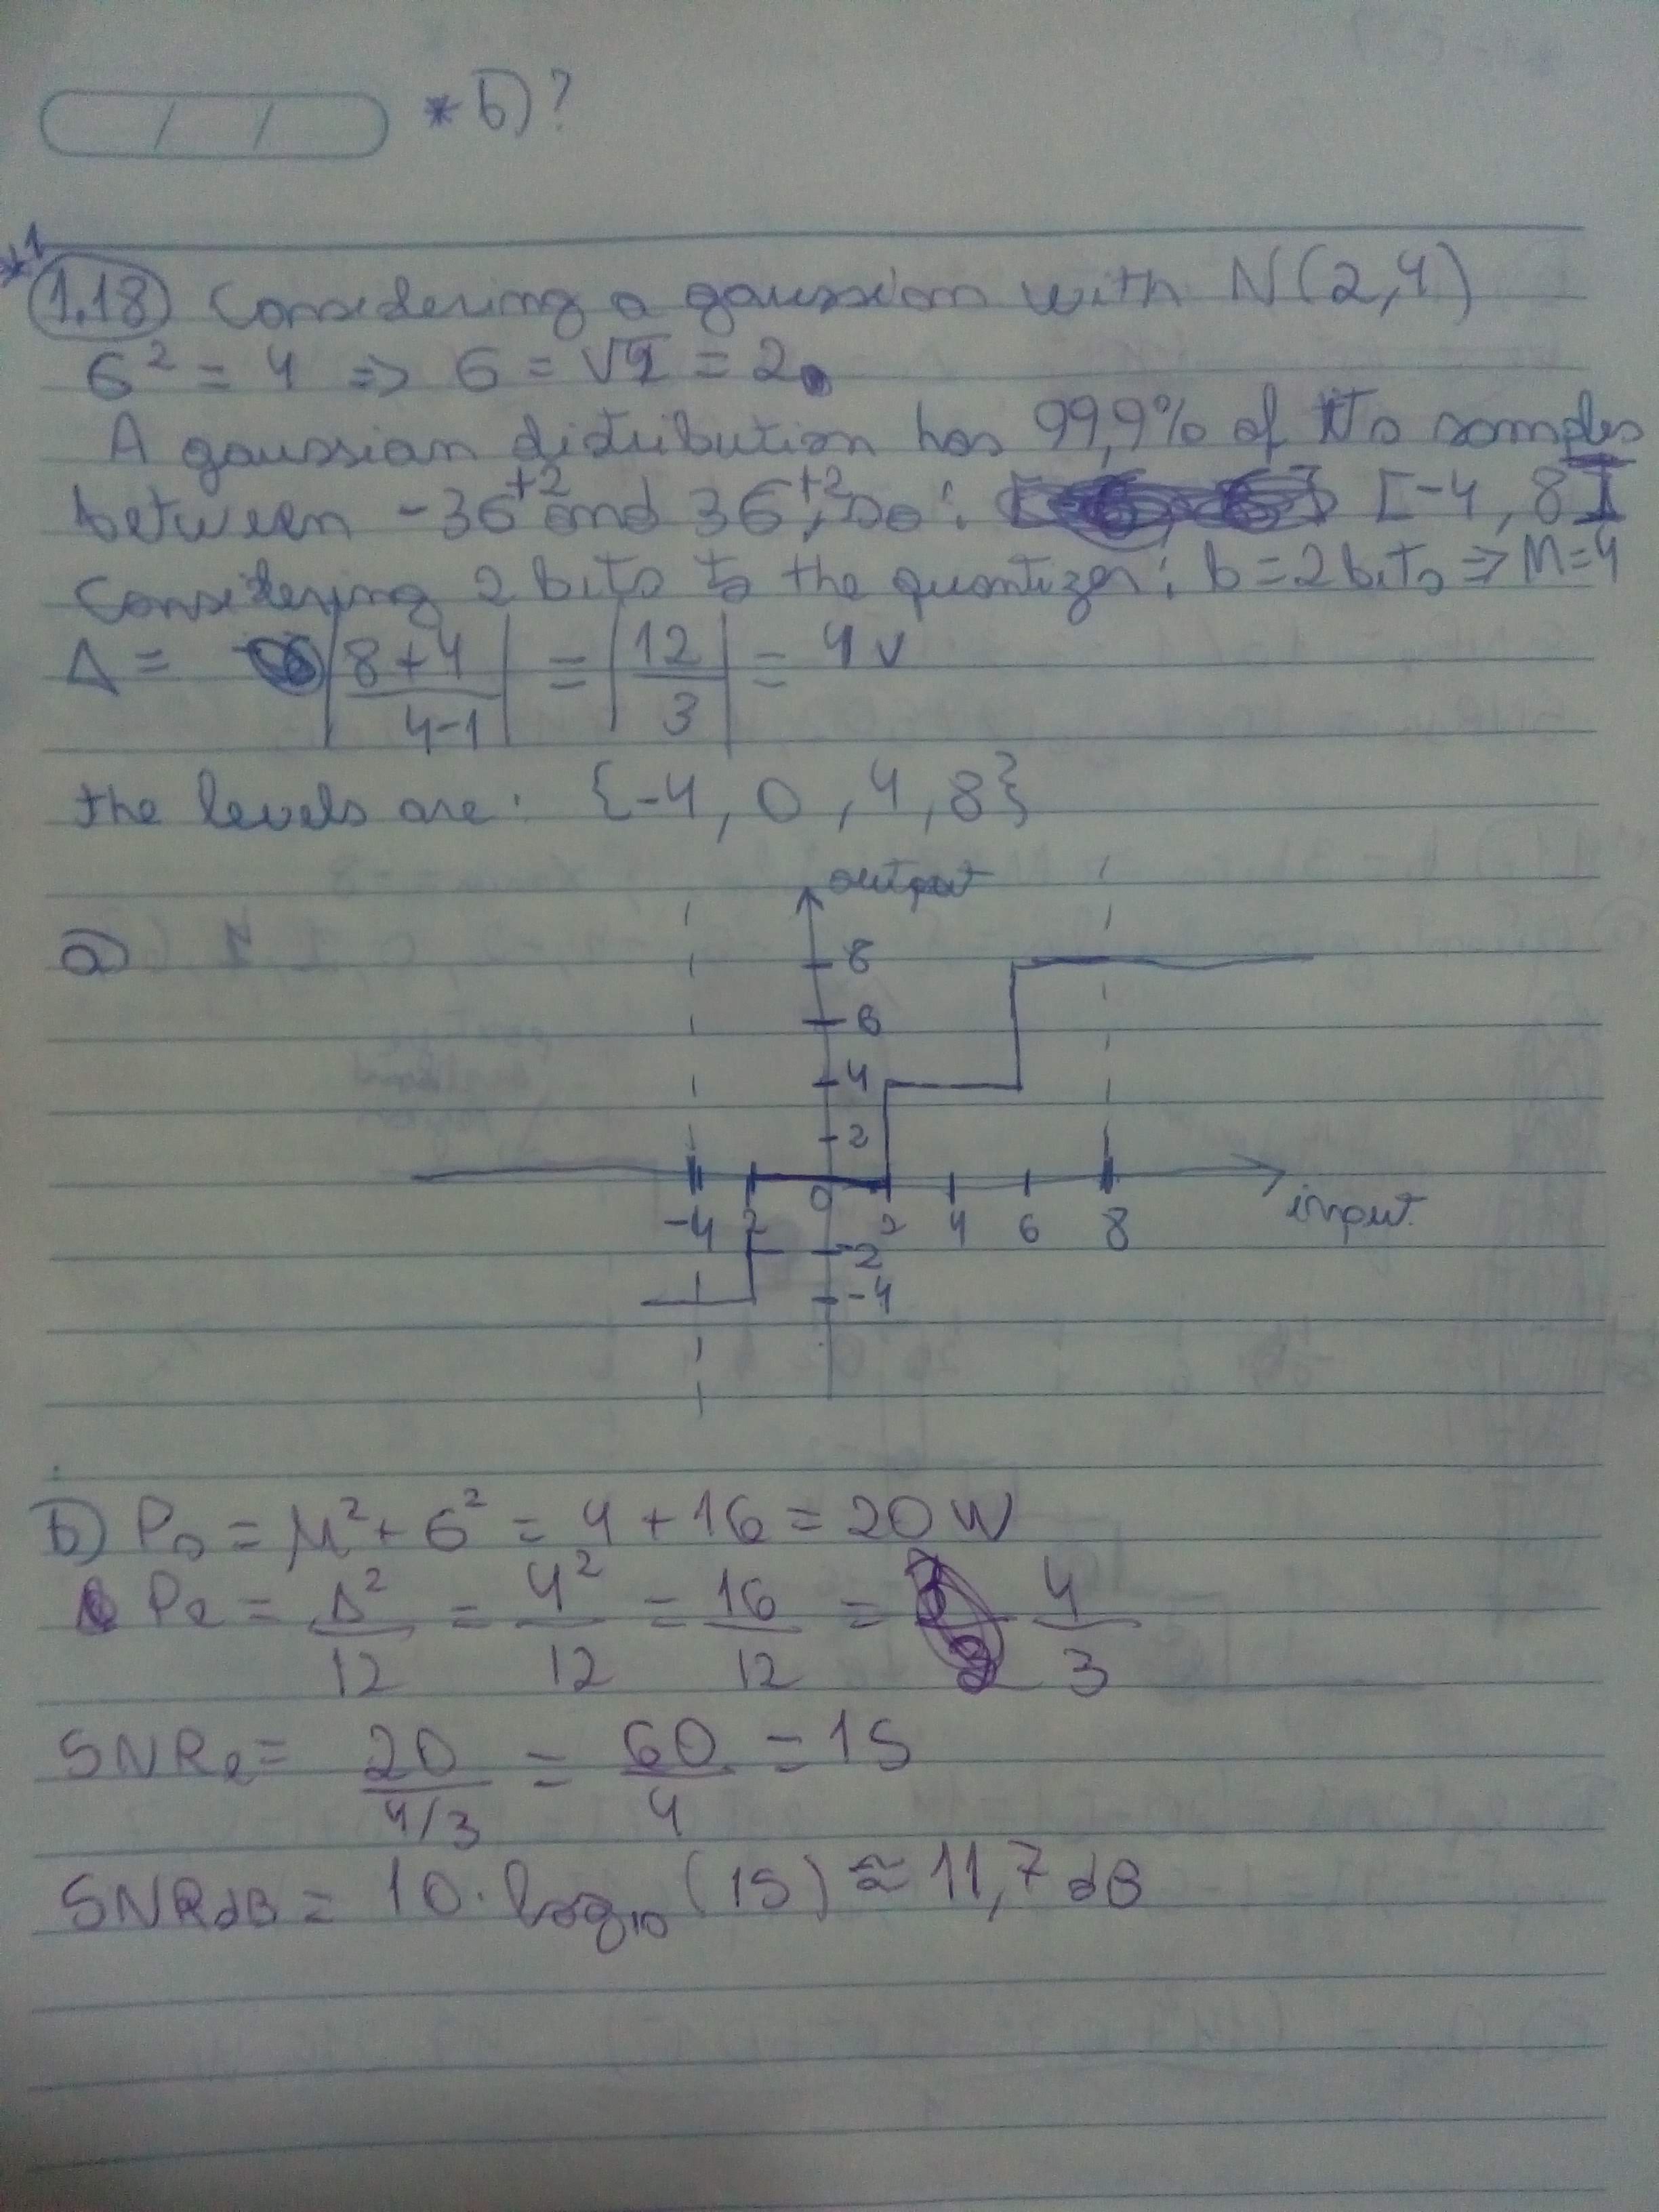 / / * b)?
*1
1.18 Considering a gaussian with N(2,4)
σ² = 4 => σ = √4 = 2.
A gaussian distribution has 99,9% of its samples
between -3σ+2 and 3σ+2, so: [-4, 8]
Considering 2 bits to the quantizer: b=2bits => M=4
Δ = |8+4 / 4-1| = |12 / 3| = 4 V
the levels are: {-4, 0, 4, 8}
a)
output
8
6
4
2
0
-4 2 2 4 6 8 input
-2
-4
b) Ps = μ² + σ² = 4 + 16 = 20 W
Pe = Δ²/12 = 4²/12 = 16/12 = 4/3
SNRe = 20 / 4/3 = 60/4 = 15
SNRdB = 10 · log10 (15) ≈ 11,7 dB